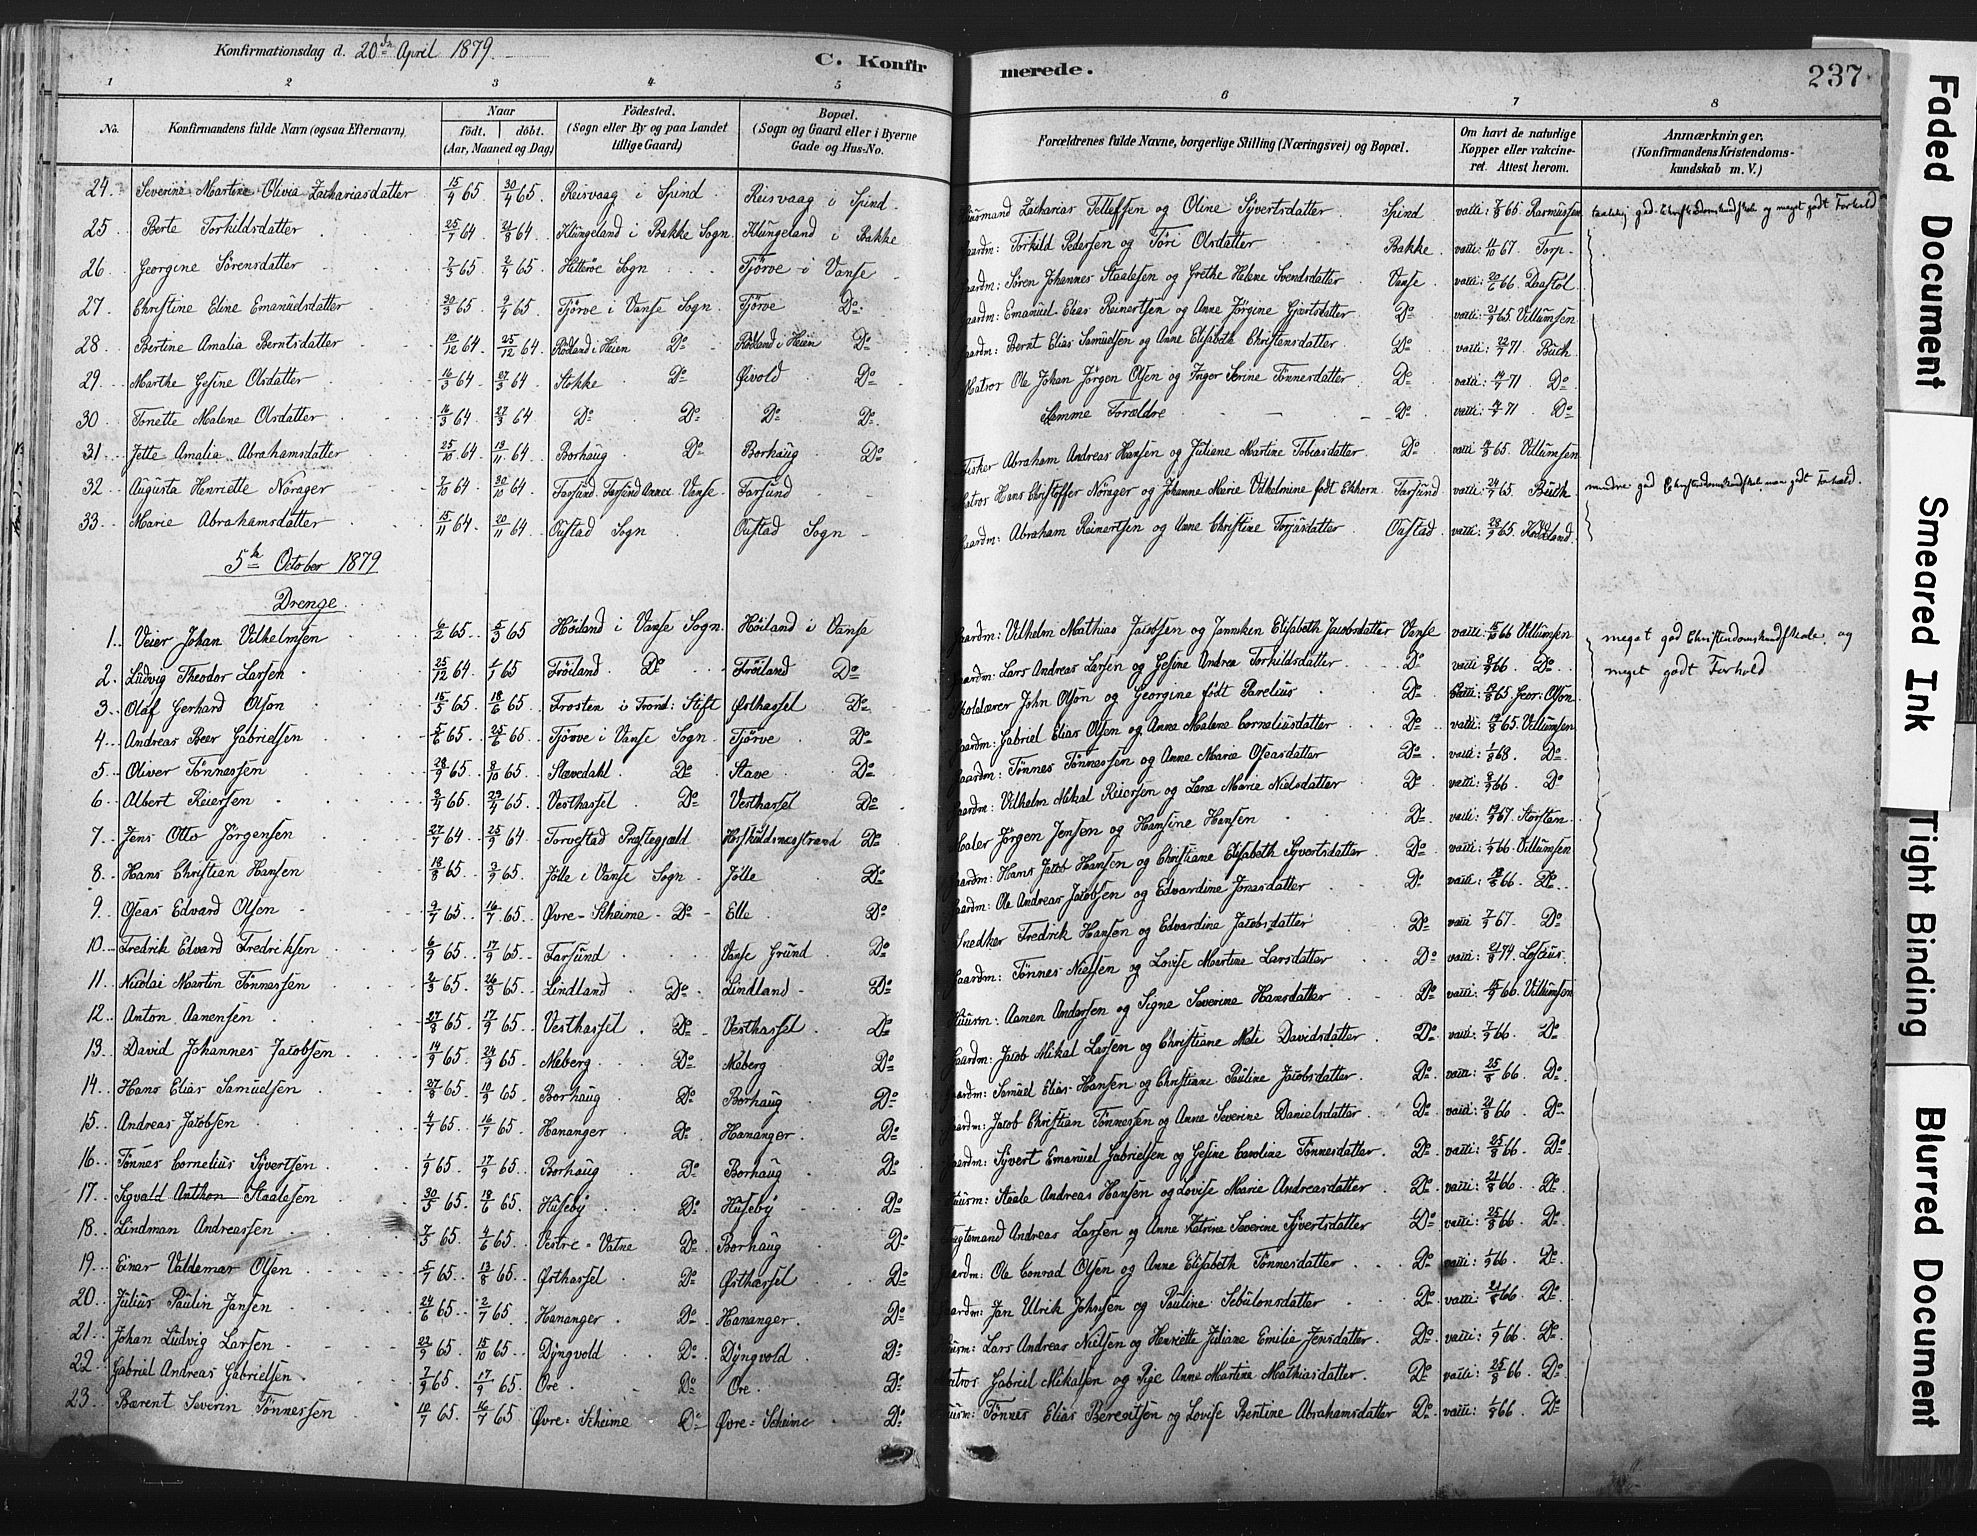 Konfirmationsdag d. 20de April 1879.
C. Konfirmerede.
237.
1 2 3 4 5 6 7 8
No. | Konfirmandens fulde Navn (ogsaa Efternavn). | Naar födt. döbt. (Aar, Maaned og Dag) | Födested. (Sogn eller By og paa Landet tillige Gaard) | Bopæl. (Sogn og Gaard eller i Byerne Gade og Hus-No. | Forældrenes fulde Navne, borgerlige Stilling (Næringsvei) og Bopæl. | Om havt de naturlige Kopper eller vakcineret. Attest herom. | Anmærkninger. (Konfirmandens Kristendomskundskab m. V.)
24. Severine Martine Olivia Zachariasdatter 15/4 65 30/4 65 Reisvaag i Spind Reisvaag i Spind. Huusmand Zacharias Tellefsen og Oline Syvertsdatter Spind vacci: 7/8 66 Rasmussen
25 Berte Torkildsdatter 25/7 64 21/8 64 Klungeland i Bakke Sogn Klungeland i Bakke Gaardm: Torkild Pedersen og Töri Olsdatter Bakke vacci: 11/10 67 Torp
26 Georgine Sörensdatter 7/3 65 2/4 65 Hitteröe Sogn Tjörve i Vanse Gaardm: Sören Johannes Staalesen og Grethe Helene Svendsdatter Vanse vacci: 20/6 66 Daastöl
27 Christine Eline Emanuelsdatter 30/3 65 9/4 65 Tjörve i Vanse Sogn Tjörve Do Gaardm: Emanuel Elias Reinertsen og Anne Jörgine Gjertsdatter Do vacci: 21/9 65 Villumsen
28 Bertine Amalia Berntsdatter 10/12 64 25/12 64 Rödland i Heien Do Rödland i Heien Do Gaardm: Bernt Elias Samuelsen og Anne Elisabeth Christensdatter Do vacci: 22/7 71 Buch
29. Marthe Gesine Olsdatter 16/3 64 27/3 64 Stokke Do Öivold Do Matros Ole Johan Jörgen Olsen og Inger Serine Tönnesdatter Do vacci: 71 Do
30 Tonette Malene Olsdatter 16/3 64 27/3 64 Do Do Do Do Samme Forældre Do vacci: 71 Do
31. Jette Amalia Abrahamsdatter 25/10 64 13/11 64 Borhaug Do Borhaug Do Fisker Abraham Andreas Hansen og Juliane Martine Tobiasdatter Do vacci: 65. Villumsen
32 Augusta Henriette Nörager 7/10 64 30/10 64 Farsund. Farsund Annex Vanse Farsund Matros Hans Christoffer Nörager og Johanne Marie Vilhelmine födt Ekhorn Farsund vacci: 24/7 65. Buch
33. Marie Abrahamsdatter 15/11 64 20/11 64 Oustad Sogn Oustad Sogn Gaardm: Abraham Reinertsen og Anne Christine Torjusdatter Oustad vacci: 65.
5te October 1879
Drenge.
1. Veier Johan Vilhelmsen 6/2 65 5/3 65 Höiland i Vanse Sogn Höiland i Vanse Gaardm: Vilhelm Mathias Jacobsen og Janniken Elisabeth Jacobsdatter Vanse vacci: 15/10 66 Villumsen
2. Ludvig Theodor Larsen 25/12 64 1/1 65 Tröiland Do Tröiland Do Gaardm: Lars Andreas Larsen og Gesine Andrea Torkildsdatter Do vacci: 66. Do
3. Olaf Gerhard Olson 15/5 65 18/6 65 Frosten i Trond: Stift Östhassel Do Skolelærer John Olson og Georgine födt Parelius Do vacci: 65 Geor: Olson
4. Andreas Beer Gabrielsen 5/6 65 25/6 65 Tjörve i Vanse Sogn Tjörve Do Gaardm: Gabriel Elias Olsen og Anne Malene Corneliusdatter Do vacci: 65. Villumsen
5. Oliver Tönnessen 28/9 65 8/10 65 Stævedahl Do Stave Do Gaardm: Tönnes Tönnessen og Anne Marie Oseasdatter Do vacci: 68. Do
6. Albert Reiersen 2/4 65 23/4 65 Vesthassel Do Vesthassel Do Gaardm: Vilhelm Mikal Reiersen og Lena Marie Nielsdatter Do vacci: 66 Do
7. Jens Otto Jörgensen 27/7 64 25/9 64 Torvestad Præstegjæld Do Maler Jörgen Jensen og Hansine Hansen Do vacci: 67 Korstan
8. Hans Christian Hansen 18/8 65 3/9 65 Jölle i Vanse Sogn Jölle Do Gaardm: Hans Jacob Hansen og Christiane Elisabeth Syvertsdatter Do vacci: 1/9 66 Villumsen
9. Oseas Edvard Olsen 2/7 65 16/7 65 Övre-Skeime Do Elle Do Gaardm: Ole Andreas Jacobsen og Edvardine Jonasdatter Do vacci: 66. Do
10. Fredrik Edvard Fredriksen 6/9 65 17/9 65 Farsund Vanse Grund Do Snedker Fredrik Hansen og Edvardina Jacobsdatter Do vacci: 67. Do
11. Nicolai Martin Tönnessen 2/3 65 26/3 65 Lindland Do Lindland Do Gaardm: Tönnes Nielsen og Lovise Martine Larsdatter Do vacci: 21/8 74. Loftius
12. Anton Aanensen 27/8 65 17/9 65 Vesthassel Do Vesthassel Do Huusm: Aanen Andersen og Signe Severine Hansdatter Do vacci: 66. Villumsen
13. David Johannes Jacobsen 14/9 65 24/9 65 Meberg Do Meberg Do Gaardm: Jacob Mikal Larsen og Christiane Mele Davidsdatter Do vacci: 66. Do
14. Hans Elias Samuelsen 27/8 65 10/9 65 Borhaug Do Borhaug Do Gaardm: Samuel Elias Hansen og Christiane Pauline Jacobsdatter Do vacci: 25/8 66. Do
15. Andreas Jacobsen 4/7 65 16/7 65 Hananger Do Hananger Do Gaardm: Jacob Christian Tönnessen og Anne Severine Danielsdatter Do vacci: 21/8 66 Do
16. Tönnes Cornelius Syvertsen 1/9 65 17/9 65 Borhaug Do Borhaug Do Gaardm: Syvert Emanuel Gabrielsen og Gesine Caroline Tönnesdatter Do vacci: 25/8 66. Do
17. Sigvald Anthon Staalesen 30/5 65 18/6 65 Huseby Do Huseby Do Huusm: Staale Andreas Hansen og Lovise Marie Andreasdatter Do vacci: 21/8 66. Do
18. Lindman Andreassen 7/5 65 4/6 65 Vestre-Vatne Do Borhaug Do Andreas Larsen og Anne Katrine Severine Syvertsdatter Do vacci: 25/8 66. Do
19. Einar Valdemar Olsen 5/7 65 13/8 65 Östhassel Do Östhassel Do Gaardm: Ole Conrad Olsen og Anne Elisabeth Tönnesdatter Do vacci: 1/9 66. Do
20. Julius Paulin Jansen 24/6 65 2/7 65 Hananger Do Hananger Do Gaardm: Jan Ulrik Johnsen og Pauline Sebulonsdatter Do vacci: 21/8 66. Do
21. Johan Ludvig Larsen 22/9 65 15/10 65 Dyngvold Do Dyngvold Do Huusm: Lars Andreas Nielsen og Henriette Juliane Emilie Jensdatter Do vacci: 1/9 66. Do
22. Gabriel Andreas Gabrielsen 7/9 65 17/9 65 Ore Do Ore Do Matros Gabriel Mikalsen og Pige Anne Martine Mathiasdatter Do vacci: 25/8 66. Do
23. Bærent Severin Tönnessen 10/7 65 16/7 65 Övre-Skeime Do Övre-Skeime Do Huusm: Tönnes Elias Berentsen og Lovise Bentine Abrahamsdatter Do vacci: 1/9 66 Do
taalelig god Christendomskundskab og meget godt Forhold
mindre god Christendomskundskab, men godt Forhold.
meget god Christendomskundskab og
meget godt Forhold
Faded Document
Smeared Ink
Tight Binding
Blurred Document